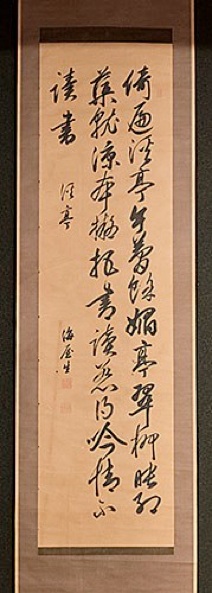 倚遍溪亭午夢餘媚亭翠柳映紅
蕖就涼本擬把書讀惹得吟情不
讀書
溪亭
海屋生